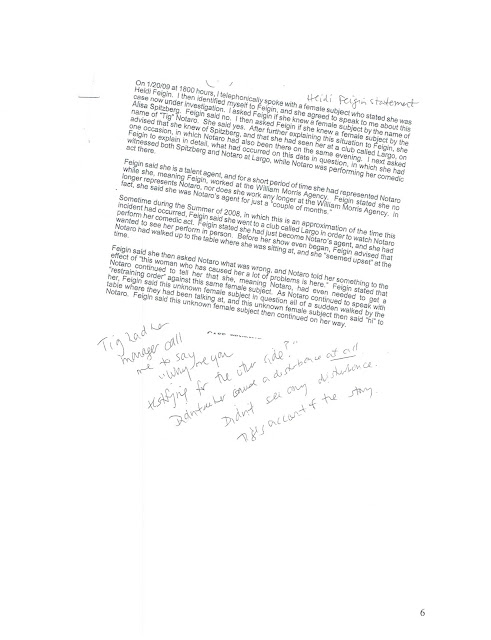 On 1/20/09 at 1800 hours, I telephonically spoke with a female subject who stated she was
Heidi Feigin. I then identified myself to Feigin, and she agreed to speak to me about this
case now under investigation. I asked Feigin if she knew a female subject by the name of
Alisa Spitzberg. Feigin said no. I then asked Feigin if she knew a female subject by the
name of "Tig" Notaro. She said yes. After further explaining this situation to Feigin, she
advised that she knew of Spitzberg, and that she had seen her at a club called Largo, on
one occasion, in which Notaro had also been there on the same evening. I next asked
Feigin to explain in detail, what had occurred on this date in question, in which she had
witnessed both Spitzberg and Notaro at Largo, while Notaro was performing her comedic
act there.
Heidi Feigin statement
Feigin said she is a talent agent, and for a short period of time she had represented Notaro
while she, meaning Feigin, worked at the William Morris Agency. Feigin stated she no
longer represents Notaro, nor does she work any longer at the William Morris Agency. In
fact, she said she was Notaro's agent for just a "couple of months."
Sometime during the Summer of 2008, in which this is an approximation of the time this
incident had occurred, Feigin said she went to a club called Largo in order to watch Notaro
perform her comedic act. Feigin stated she had just become Notaro's agent, and she had
wanted to see her perform in person. Before her show even began, Feigin advised that
Notaro had walked up to the table where she was sitting at, and she "seemed upset" at the
time.
Feigin said she then asked Notaro what was wrong, and Notaro told her something to the
effect of "this woman who has caused her a lot of problems is here." Feigin stated that
Notaro continued to tell her that she, meaning Notaro, had even needed to get a
"restraining order" against this same female subject. As Notaro continued to speak with
her, Feigin said this unknown female subject in question all of a sudden walked by the
table where they had been talking at, and this unknown female subject then said "hi" to
Notaro. Feigin said this unknown female subject then continued on her way.
Tig had her
manager call
me to say
"Why are you
testifying for the other side?"
Didn't see her cause a disturbance at all
Didn't see any disturbance.
Tig's account of the story.
6